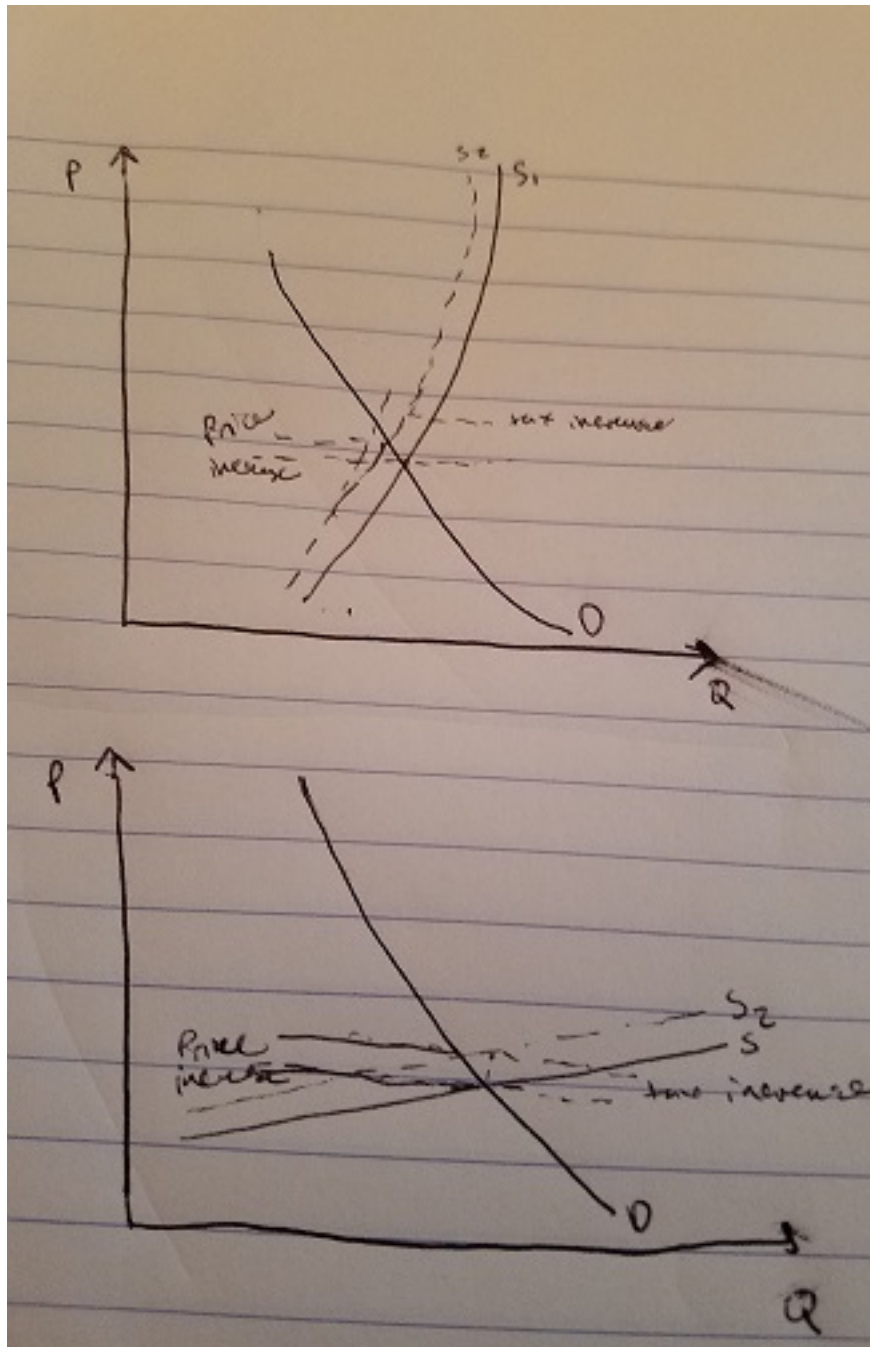 P
S2
S1
Price
increase
tax increase
D
Q
P
S2
S
Price
increase
tax increase
D
Q